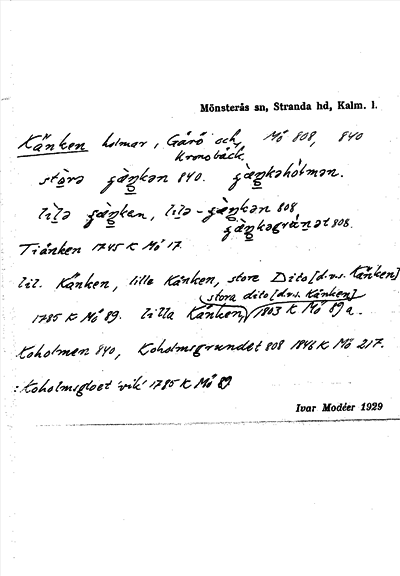 Mönsterås sn, Stranda hd, Kalm. l.
Känken holmar, Gårö och Kronobäck, Mö 808, 840
stòrə gàŋkən 840. gàŋkəhòlmən.
lìlə gàŋkən, lìlə-gàŋkən 808
gàŋkəgrúnət 808.
Tiånken 1745 K Mö 17.
lil. Känken, lille Känken, store Dito [dvs. Känken]
1785 K Mö 89. lilla Känken, stora dito [dvs. Känken] 1803 K Mö 89a.
Koholmen 840, Koholmsgrundet 808 1846 K Mö 217.
:Koholmsgloet 'vik' 1785 K Mö 89
Ivar Modéer 1929